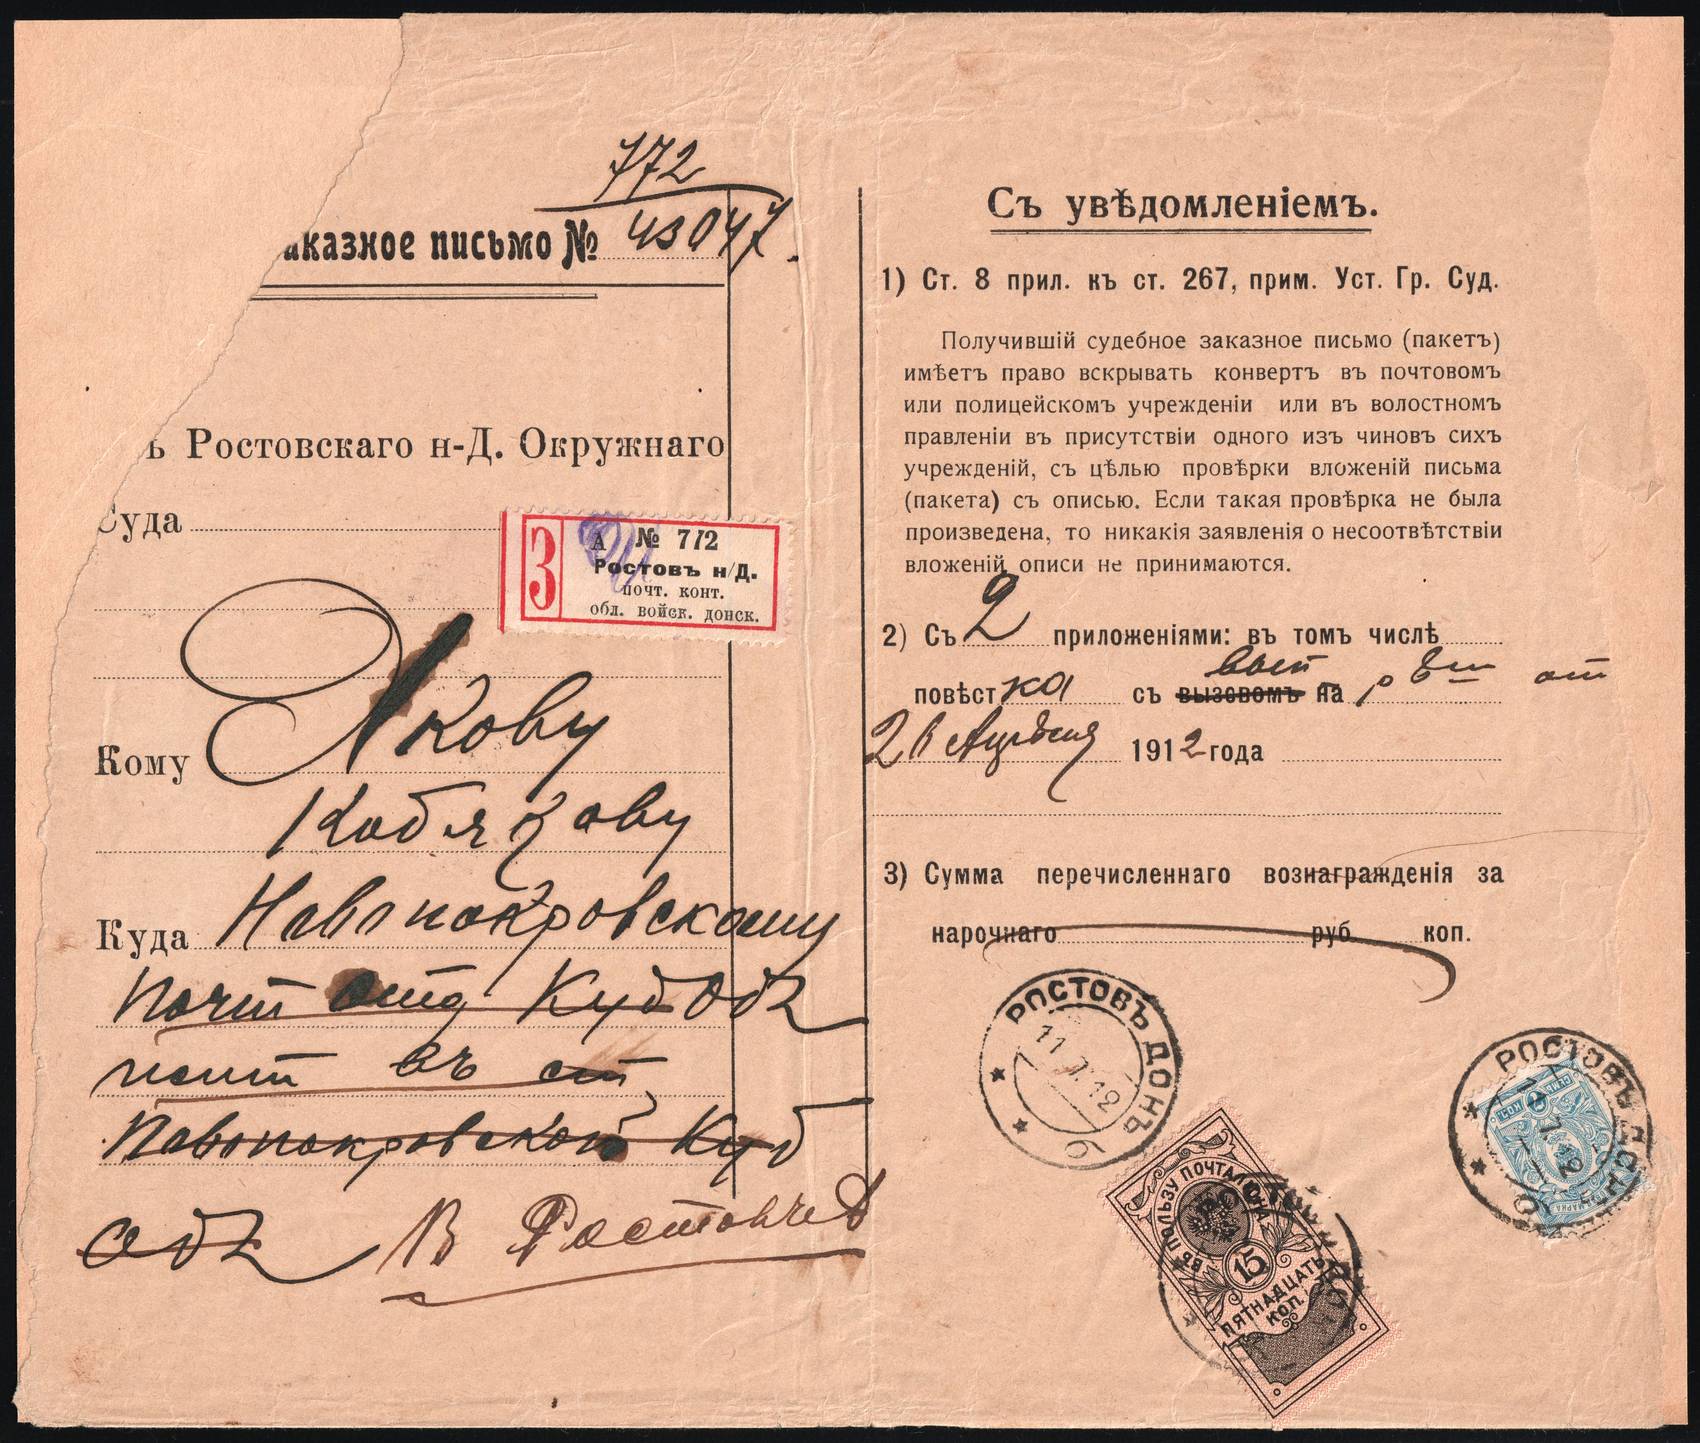 772
аказное письмо № 43047.
ъ Ростовскаго н-Д. Окружнаго
Суда
З
А № 772
Ростовъ н/Д.
почт. конт.
обл. войск. донск.
Кому Якову
Кобязову
Куда Новопокровскому
почт отд Куб Обл
почт въ ст
Новопокровской Куб
обл В Ростовчев
Съ увѣдомленіемъ.
1) Ст. 8 прил. къ ст. 267, прим. Уст. Гр. Суд.
Получившій судебное заказное письмо (пакетъ)
имѣетъ право вскрывать конвертъ въ почтовомъ
или полицейскомъ учрежденіи или въ волостномъ
правленіи въ присутствіи одного изъ чиновъ сихъ
учрежденій, съ цѣлью провѣрки вложеній письма
(пакета) съ описью. Если такая провѣрка не была
произведена, то никакія заявленія о несоотвѣтствіи
вложеній описи не принимаются.
2) Съ 2 приложеніями: въ томъ числѣ
повѣстка съ вызовомъ на от
1912 года
3) Сумма перечисленнаго вознагражденія за
нарочнаго руб коп.
РОСТОВЪ ДОНЪ
11.7.12
б
РОСТОВЪ ДОНЪ
11.7.12
б
СЕМЬ КОП.
7
МАРКА
ВЪ ПОЛЬЗУ ПОЧТАЛІОНА
15
ПЯТНАДЦАТЬ
КОП.